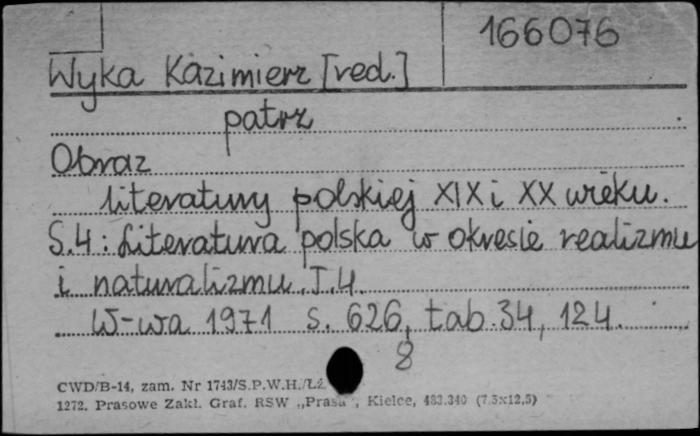 166076
Wyka Kazimierz [red.]
patrz
Obraz
literatury polskiej XIX i XX wieku.
S.4: Literatura polska w okresie realizmu
i naturalizmu. T.4.
W-wa 1971 s. 626, tab. 34, 124.
8
CWD/B-14, zam. Nr 1743/S.P.W.H./Łź
1272. Prasowe Zakł. Graf. RSW „Prasa", Kielce, 483.340 (7.5x12.5)